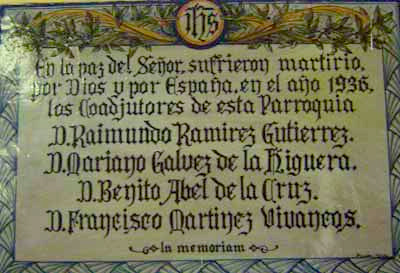 jhs
En la paz del Señor, sufrieron martirio,
por Dios y por España, en el año 1936,
los Coadjutores de esta Parroquia
D. Raimundo Ramirez Gutierrez.
D. Mariano Galvez de la Higuera.
D. Benito Abel de la Cruz.
D. Francisco Martinez Vivancos.
In memoriam